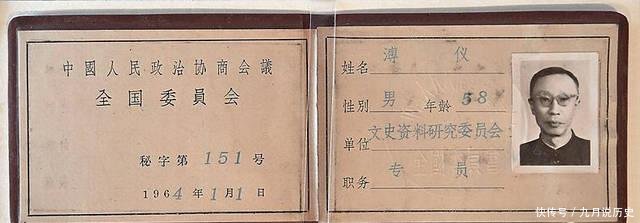 中國人民政治协商会議
全国委員会
秘字第 151 号
1964年1月1日
姓名 溥仪
性别 男 年龄 58
单位 文史资料研究委员会
职务 专員
快传号 / 九月说历史